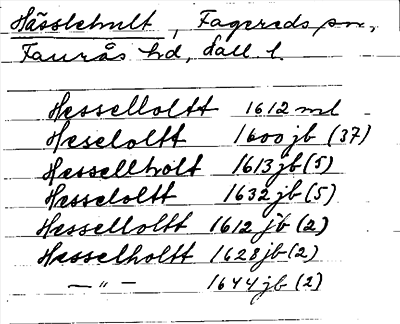 Hässlehult, Fagereds sn,
Faurås hd, Hall. l.
Hesselloltt 1612 ml
Heseloltt 1600 jb (37)
Hessellholt 1613 jb (5)
Hesseloltt 1632 jb (5)
Hesselloltt 1612 jb (2)
Hesselholtt 1628 jb (2)
— " — 1644 jb (2)